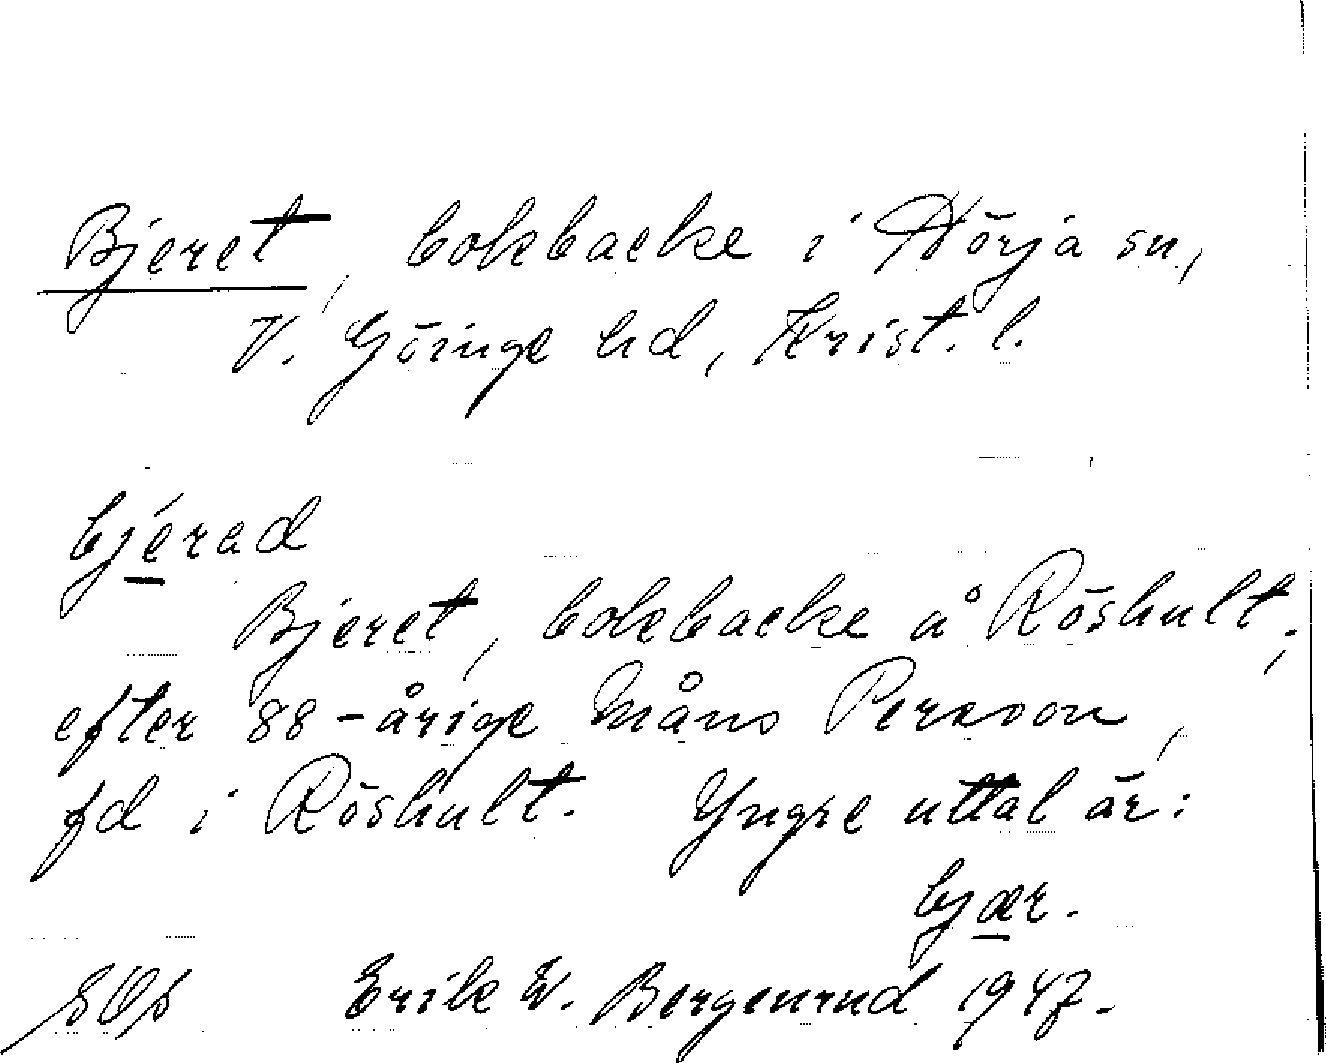 Bjeret, bokbacke i Hörja sn,
V. Göinge hd, Krist. l.
bjérad
Bjeret, bokbacke å Röshult,
efter 88-årige Måns Persson,
fd i Röshult. Yngre uttal är:
bjær.
Erik W. Bergenrud 1947.